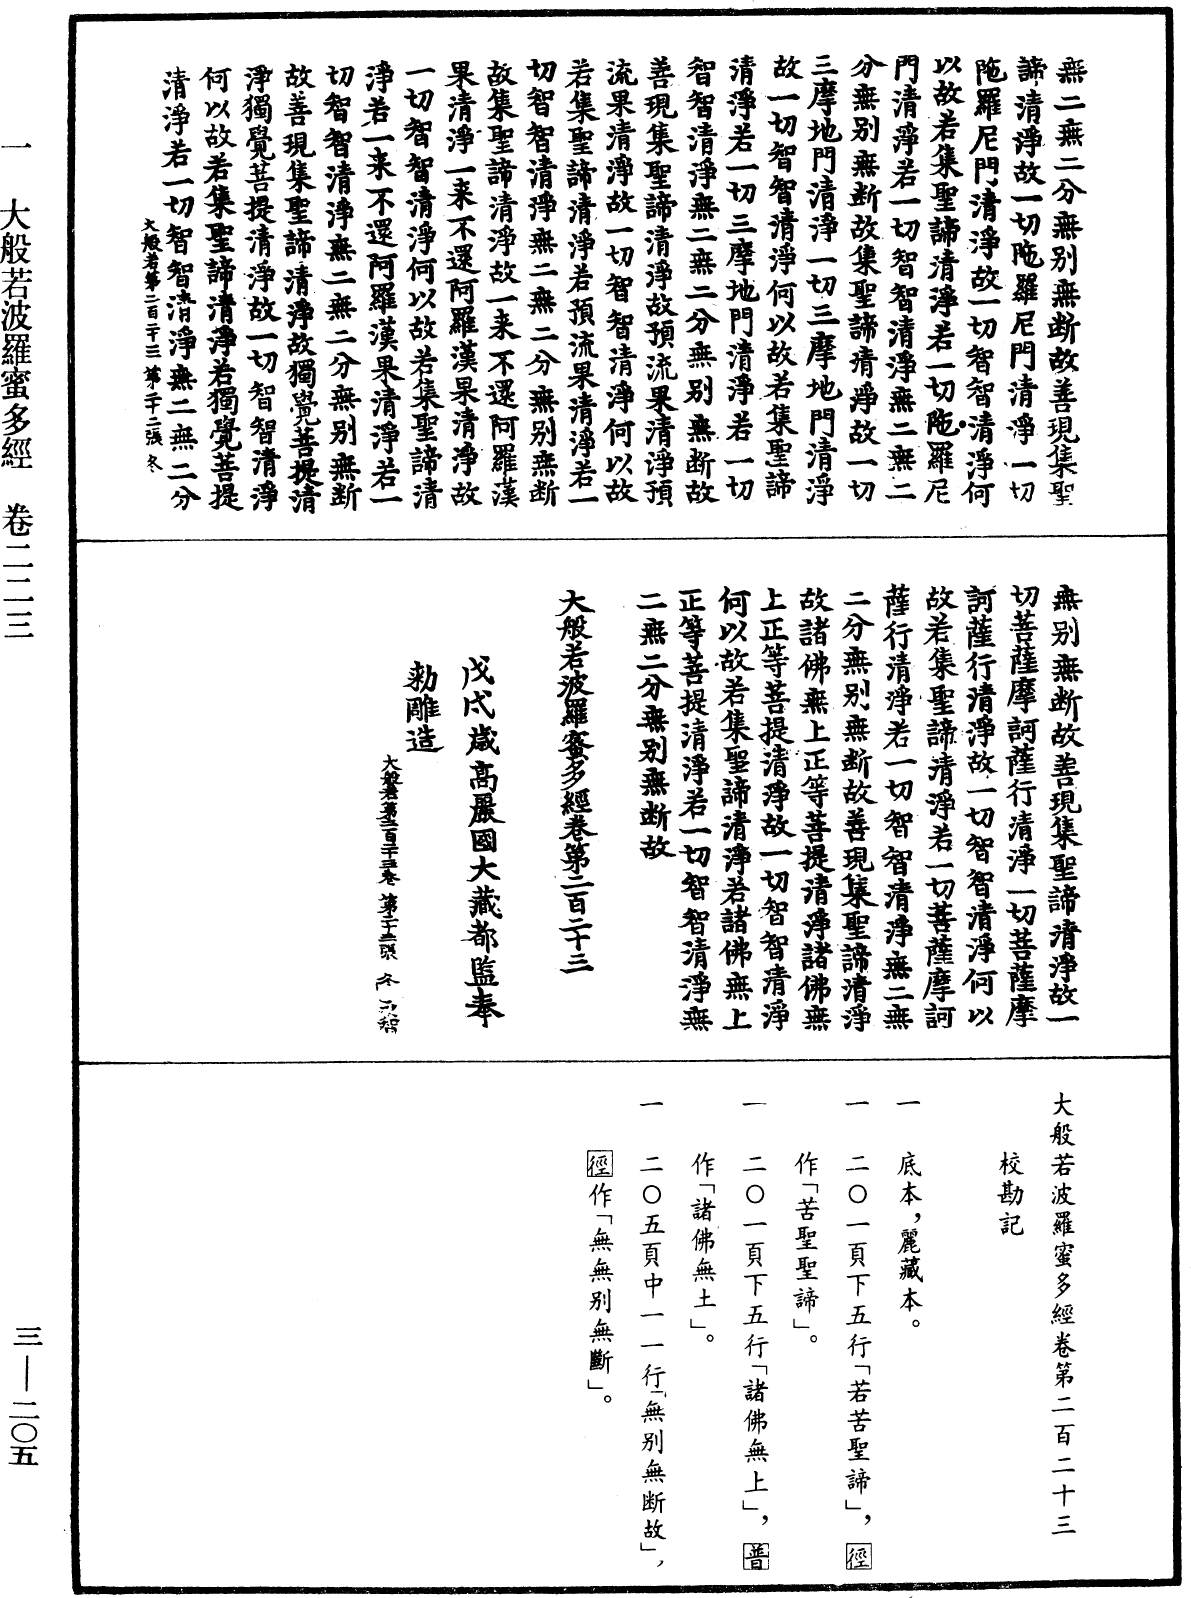 無二無二分無别無断故善現集聖
諦清淨故一切陁羅尼門清淨一切
陁羅尼門清淨故一切智智清淨何
以故若集聖諦清淨若一切陁羅尼
門清淨若一切智智清淨無二無二
分無别無断故集聖諦清淨故一切
三摩地門清淨一切三摩地門清淨
故一切智智清淨何以故若集聖諦
清淨若一切三摩地門清淨若一切
智智清淨無二無二分無别無断故
善現集聖諦清淨故預流果清淨預
流果清淨故一切智智清淨何以故
若集聖諦清淨若預流果清淨若一
切智智清淨無二無二分無别無断
故集聖諦清淨故一来不還阿羅漢
果清淨一来不還阿羅漢果清淨故
一切智智清淨何以故若集聖諦清
淨若一来不還阿羅漢果清淨若一
切智智清淨無二無二分無别無断
故善現集聖諦清淨故獨覺菩提清
淨獨覺菩提清淨故一切智智清淨
何以故若集聖諦清淨若獨覺菩提
清淨若一切智智清淨無二無二分
大般若第二百二十三 第二十二張 冬
無别無断故善現集聖諦清淨故一
切菩薩摩訶薩行清淨一切菩薩摩
訶薩行清淨故一切智智清淨何以
故若集聖諦清淨若一切菩薩摩訶
薩行清淨若一切智智清淨無二無
二分無别無断故善現集聖諦清淨
故諸佛無上正等菩提清淨諸佛無
上正等菩提清淨故一切智智清淨
何以故若集聖諦清淨若諸佛無上
正等菩提清淨若一切智智清淨無
二無二分無别無断故
大般若波羅蜜多經卷第二百二十三
戊戌歲高麗國大藏都監奉
勅雕造
大般若第二百二十三卷 第二十三張 冬
大般若波羅蜜多經卷第二百二十三
校勘記
一 底本，麗藏本。
一 二〇一頁下五行「若苦聖諦」，徑
作「苦聖聖諦」。
一 二〇一頁下五行「諸佛無上」，普
作「諸佛無土」。
一 二〇五頁中一一行「無别無断故」，
徑作「無無别無斷」。
一 大般若波羅蜜多經 卷二二三
三—二〇五